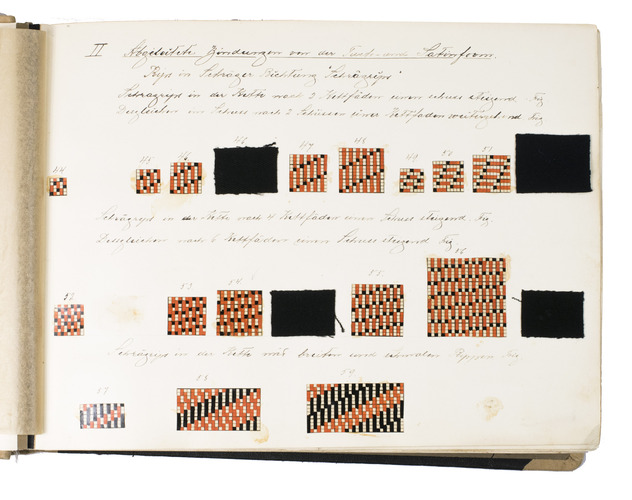 II Abgeleitete Bindungen von der Tuch- und Satinform.
Rips in schräger Richtung "Schrägrips"
Schrägrips in der Kette nach 2 Kettfäden einen Schuss steigend Fig
Desgleichen im Schuss nach 2 Schüssen einen Kettfaden weitergehend Fig
44 45 46 46 47 48 49 50 51
Schrägrips in der Kette nach 4 Kettfäden einen Schuss steigend Fig.
Desgleichen nach 6 Kettfäden einen Schuss steigend Fig
52 53 54 55 56
Schrägrips in der Kette mit breiten und schmalen Rippen Fig
57 58 59